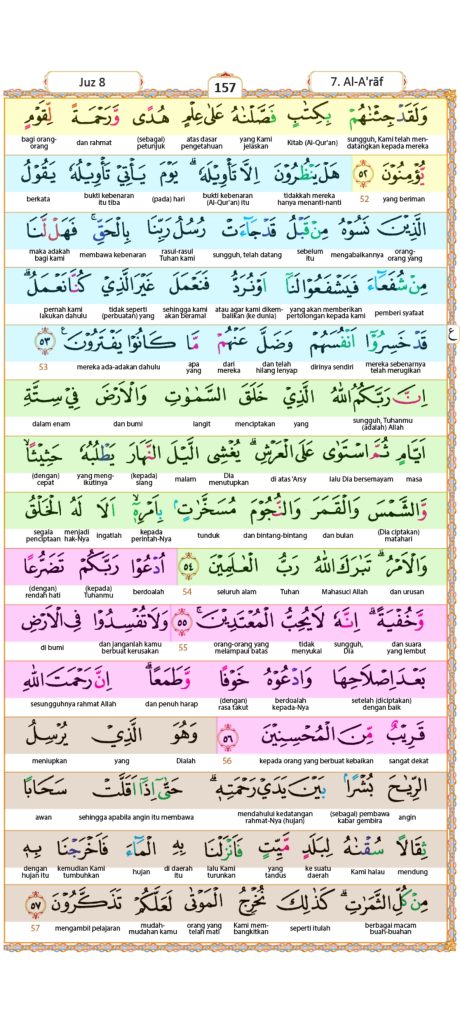 Juz 8
157
7. Al-A'rāf
وَلَقَدْ جِئْنٰهُمْ بِكِتٰبٍ فَصَّلْنٰهُ عَلٰى عِلْمٍ هُدًى وَّرَحْمَةً لِّقَوْمٍ
sungguh, Kami telah men-datangkan kepada mereka Kitab (Al-Qur'an) yang Kami jelaskan atas dasar pengetahuan (sebagai) petunjuk dan rahmat bagi orang-orang
يُّؤْمِنُوْنَ ٥٢ هَلْ يَنْظُرُوْنَ اِلَّا تَأْوِيْلَهٗۗ يَوْمَ يَأْتِيْ تَأْوِيْلُهٗ يَقُوْلُ
yang beriman 52 tidakkah mereka hanya menanti-nanti bukti kebenaran (Al-Qur'an) itu (pada) hari bukti kebenaran itu tiba berkata
الَّذِيْنَ نَسُوْهُ مِنْ قَبْلُ قَدْ جَاۤءَتْ رُسُلُ رَبِّنَا بِالْحَقِّۚ فَهَلْ لَّنَا
orang-orang yang mengabaikannya sebelum itu sungguh, telah datang rasul-rasul Tuhan kami membawa kebenaran maka adakah bagi kami
مِنْ شُفَعَاۤءَ فَيَشْفَعُوْا لَنَآ اَوْ نُرَدُّ فَنَعْمَلَ غَيْرَ الَّذِيْ كُنَّا نَعْمَلُۗ
pemberi syafaat yang akan memberikan pertolongan kepada kami atau agar kami dikem-balikan (ke dunia) sehingga kami akan beramal tidak seperti (perbuatan) yang pernah kami lakukan dahulu
قَدْ خَسِرُوْٓا اَنْفُسَهُمْ وَضَلَّ عَنْهُمْ مَّا كَانُوْا يَفْتَرُوْنَ ࣖ ٥٣
mereka sebenarnya telah merugikan dirinya sendiri dan telah hilang lenyap dari mereka apa yang mereka ada-adakan dahulu 53
ع
اِنَّ رَبَّكُمُ اللّٰهُ الَّذِيْ خَلَقَ السَّمٰوٰتِ وَالْاَرْضَ فِيْ سِتَّةِ
sungguh, Tuhanmu (adalah) Allah yang menciptakan langit dan bumi dalam enam
اَيَّامٍ ثُمَّ اسْتَوٰى عَلَى الْعَرْشِۗ يُغْشِى الَّيْلَ النَّهَارَ يَطْلُبُهٗ حَثِيْثًاۙ
masa lalu Dia bersemayam di atas 'Arsy Dia menutupkan malam (kepada) siang yang meng-ikutinya (dengan) cepat
وَّالشَّمْسَ وَالْقَمَرَ وَالنُّجُوْمَ مُسَخَّرٰتٍۢ بِاَمْرِهٖٓۙ اَلَا لَهُ الْخَلْقُ
(Dia ciptakan) matahari dan bulan dan bintang-bintang tunduk kepada perintah-Nya ingatlah menjadi hak-Nya segala penciptaan
وَالْاَمْرُۗ تَبٰرَكَ اللّٰهُ رَبُّ الْعٰلَمِيْنَ ٥٤ اُدْعُوْا رَبَّكُمْ تَضَرُّعًا
dan urusan Mahasuci Allah Tuhan seluruh alam 54 berdoalah (kepada) Tuhanmu (dengan) rendah hati
وَّخُفْيَةًۗ اِنَّهٗ لَا يُحِبُّ الْمُعْتَدِيْنَۚ ٥٥ وَلَا تُفْسِدُوْا فِى الْاَرْضِ
dan suara yang lembut sungguh, Dia tidak menyukai orang-orang yang melampaui batas 55 dan janganlah kamu berbuat kerusakan di bumi
بَعْدَ اِصْلَاحِهَا وَادْعُوْهُ خَوْفًا وَّطَمَعًاۗ اِنَّ رَحْمَتَ اللّٰهِ
setelah (diciptakan) dengan baik berdoalah kepada-Nya (dengan) rasa takut dan penuh harap sesungguhnya rahmat Allah
قَرِيْبٌ مِّنَ الْمُحْسِنِيْنَ ٥٦ وَهُوَ الَّذِيْ يُرْسِلُ
sangat dekat kepada orang yang berbuat kebaikan 56 Dialah yang meniupkan
الرِّيٰحَ بُشْرًاۢ بَيْنَ يَدَيْ رَحْمَتِهٖۗ حَتّٰٓى اِذَآ اَقَلَّتْ سَحَابًا
angin (sebagai) pembawa kabar gembira mendahului kedatangan rahmat-Nya (hujan) sehingga apabila angin itu membawa awan
ثِقَالًا سُقْنٰهُ لِبَلَدٍ مَّيِّتٍ فَاَنْزَلْنَا بِهِ الْمَاۤءَ فَاَخْرَجْنَا بِهٖ
mendung Kami halau ke suatu daerah yang tandus lalu Kami turunkan di daerah itu hujan kemudian Kami tumbuhkan dengan hujan itu
مِنْ كُلِّ الثَّمَرٰتِۗ كَذٰلِكَ نُخْرِجُ الْمَوْتٰى لَعَلَّكُمْ تَذَكَّرُوْنَ ٥٧
berbagai macam buah-buahan seperti itulah Kami mem-bangkitkan orang yang telah mati mudah-mudahan kamu mengambil pelajaran 57